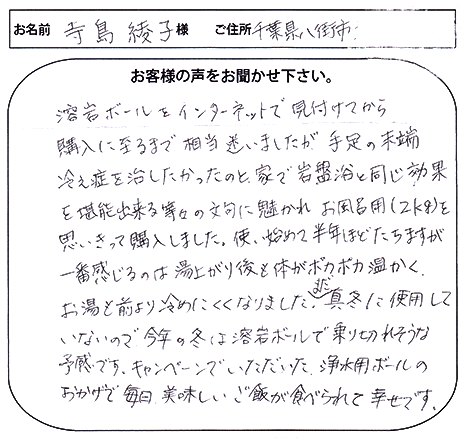 お名前 寺島 綾子 様 ご住所 千葉県八街市
お客様の声をお聞かせ下さい。
溶岩ボールをインターネットで見付けてから
購入に至るまで相当迷いましたが手足の末端
冷え症を治したかったのと、家で岩盤浴と同じ効果
を堪能出来る等々の文句に魅かれお風呂用(2kg)を
思いきって購入しました。使い始めて半年ほどたちますが
一番感じるのは湯上がり後も体がポカポカ温かく、
お湯も前より冷めにくくなりました。まだ真冬に使用して
いないので今年の冬は溶岩ボールで乗り切れそうな
予感です。キャンペーンでいただいた浄水用ボールの
おかげで毎日美味しいご飯が食べられて幸せです。